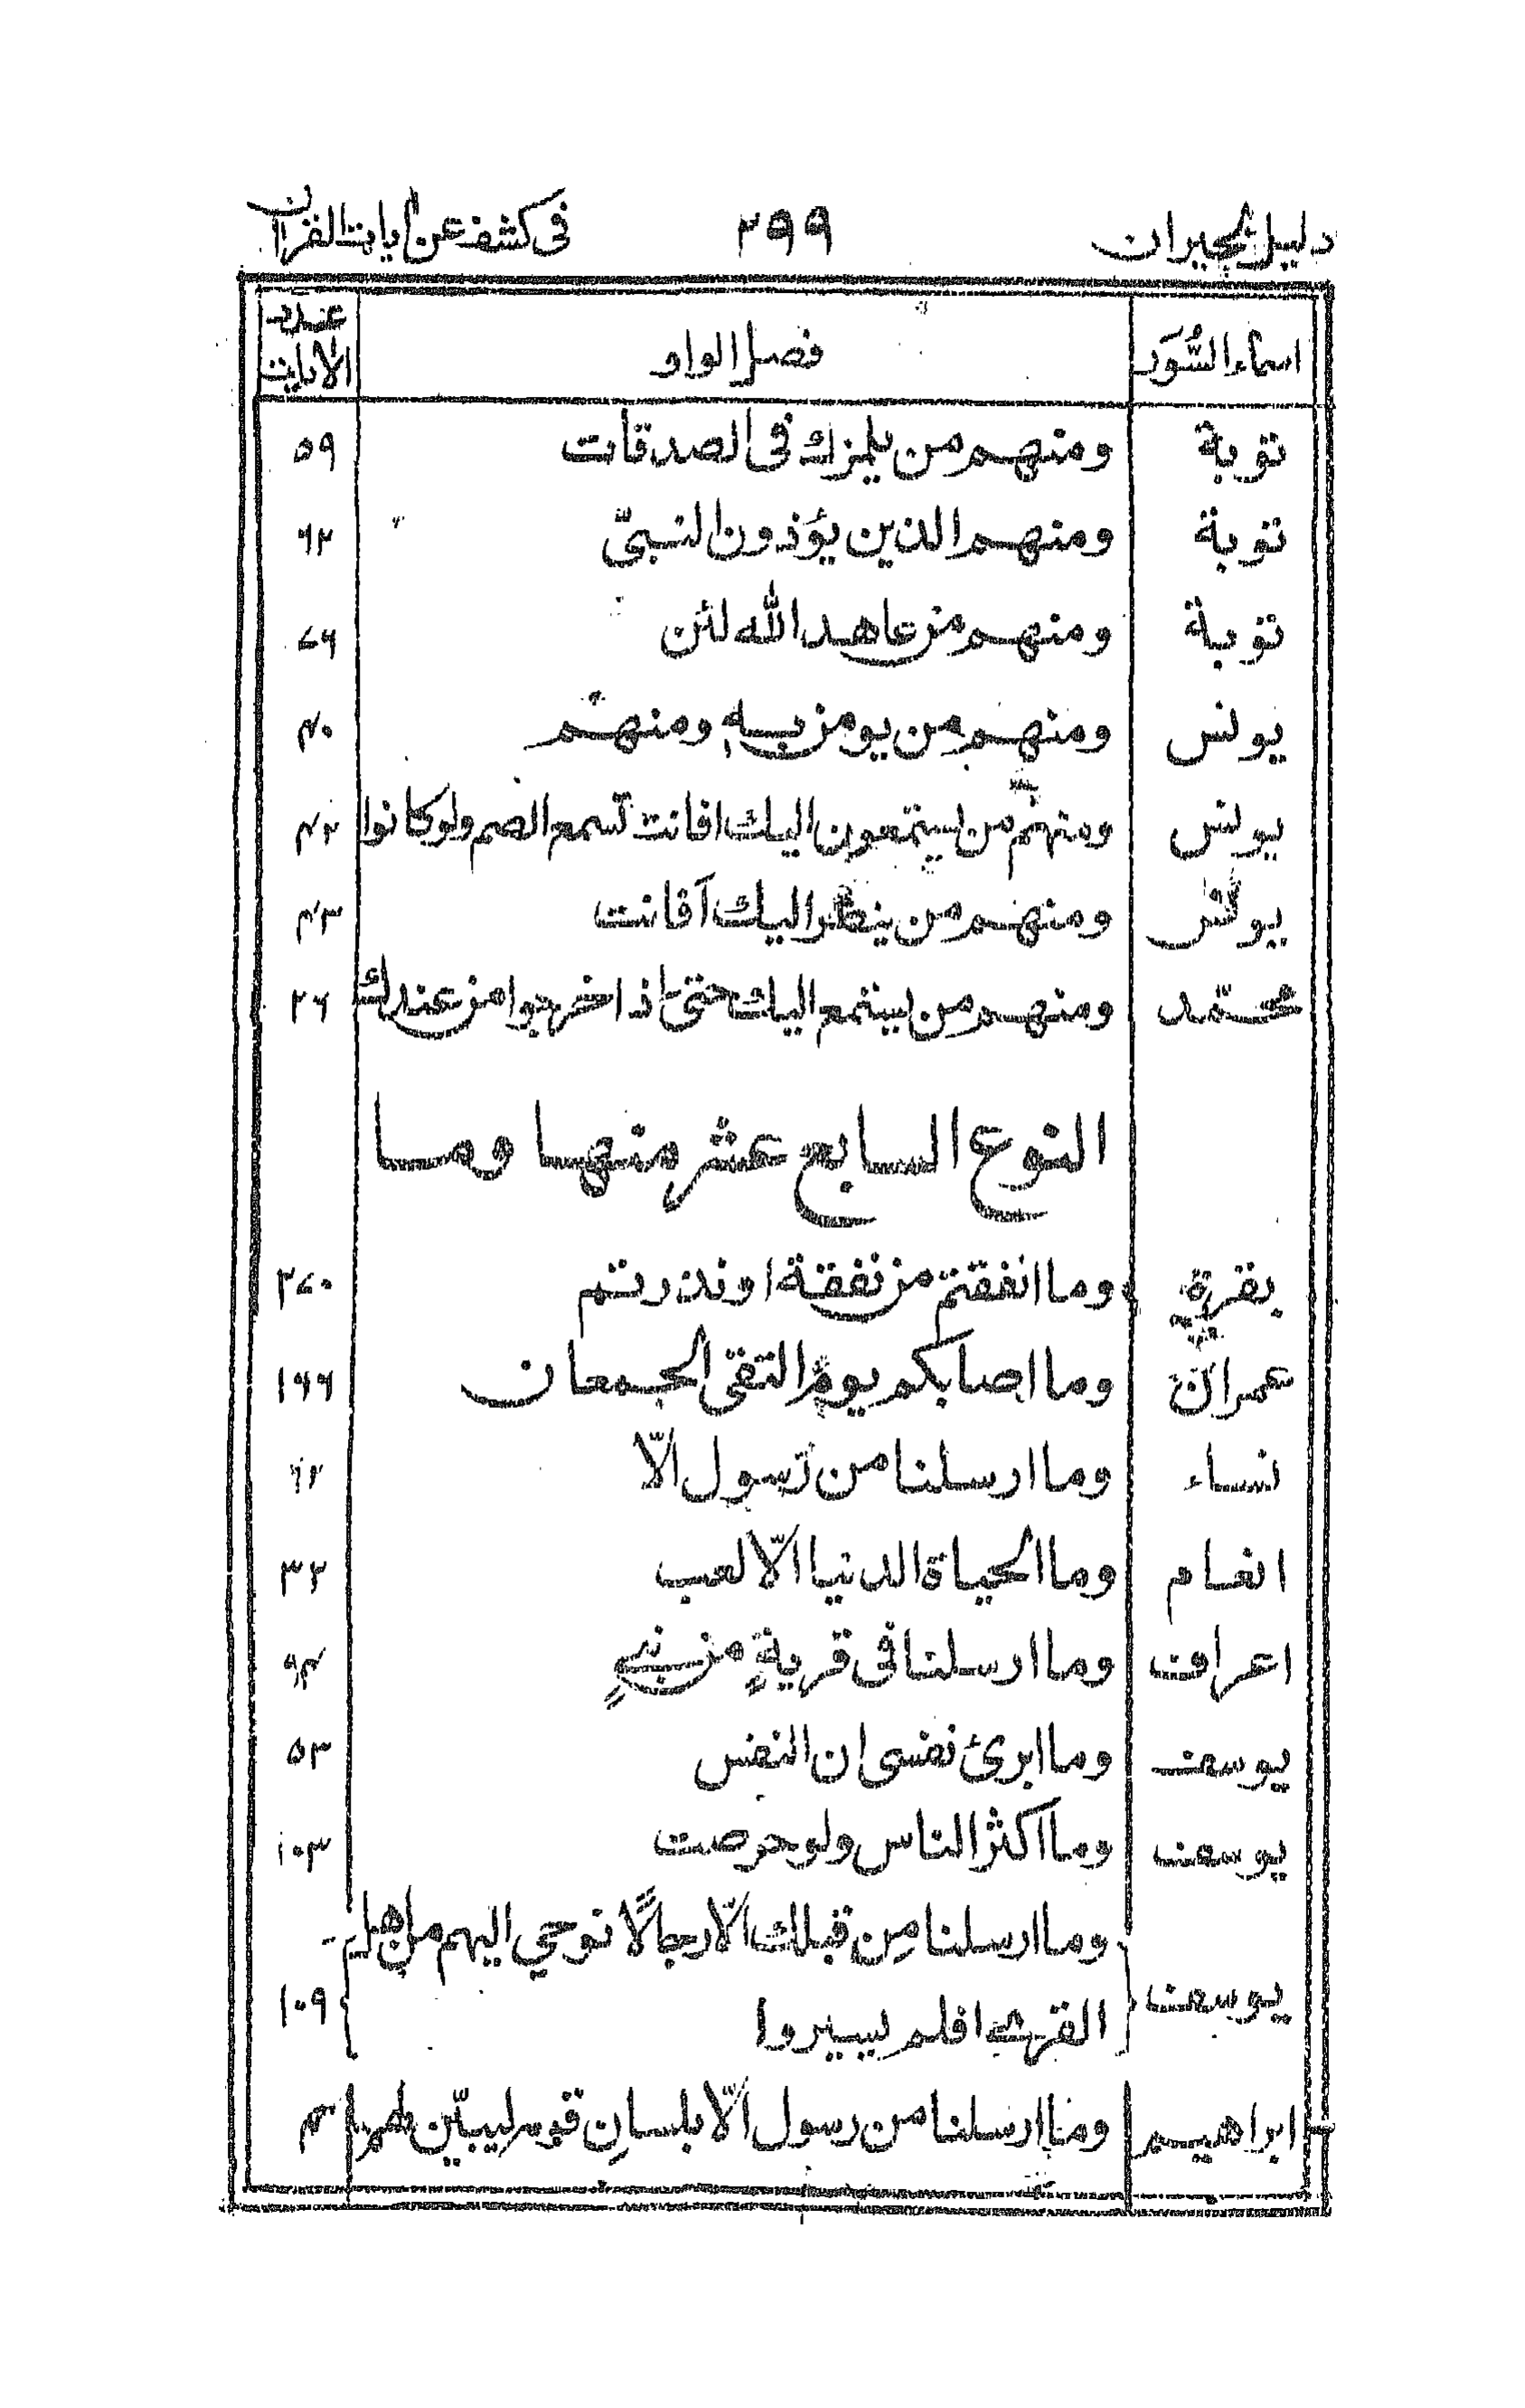 دليل الحيران ٢٩٩ في كشف عن ايات القران
اسماء السُّوَر فصل الواو عدد الايات
توبة ومنهم من يلمزك في الصدقات ٥٩
توبة ومنهم الذين يؤذون النبيّ ٦٢
توبة ومنهم من عاهد الله لئن ٧٦
يونس ومنهم من يومن بهٖ ومنهم ٤٠
يونس ومنهم من يستمعون اليك افانت تسمع الصم ولو كانوا ٤٢
يونس ومنهم من ينظر اليك آفانت ٤٣
محمّد ومنهم من يستمع اليك حتىٰ اذا خرجوا من عندك ٢٦
النوع السابع عشر منها وما
بقرة وما انفقتم من نفقة او نذرتم ٢٧٠
عمران وما اصابكم يوم التقى الجمعان ١٦٦
نساء وما ارسلنا من رسول الّا ٦٢
انعام وما الحياة الدنيا الّا لعب ٣٢
اعراف وما ارسلنا في قريةٍ من نبيٍ ٩٤
يوسف وما ابرئ نفسي ان النفس ٥٣
يوسف وما اكثر الناس ولو حرصت ١٠٣
يوسف وما ارسلنا مِن قبلك الّا رجالًا نوحي اليهم من اهل ١٠٩
القرى افلم يسيروا
ابراهيم وما ارسلنا من رسول الّا بلسانِ قومه ليبيّن لهم ٤